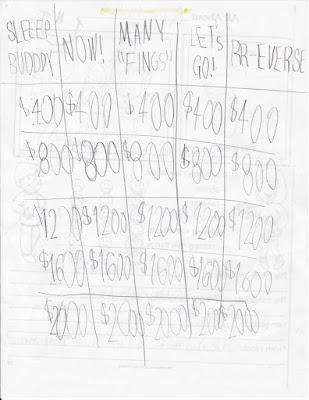 SLEEEP BUDDDY NOW! MANY "FINGS" LETS GO! RR-EVERSE
$400 $400 $400 $400 $400
$800 $800 $800 $800 $800
$1200 $1200 $1200 $1200 $1200
$1600 $1600 $1600 $1600 $1600
$2000 $2000 $2000 $2000 $2000